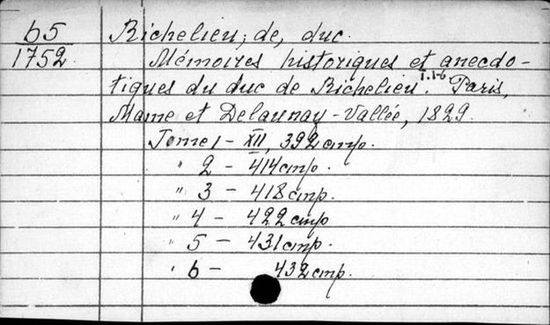 b5
1752
Richelieu; de, duc.
Mémoires historiques et anecdo-
tiques du duc de Richelieu. T.1-6 Paris,
Mame et Delaunay-Vallée, 1829.
Tome 1 - XII, 392 стр.
" 2 - 414 стр.
" 3 - 418 стр.
" 4 - 422 стр
" 5 - 431 стр.
" 6 - 432 стр.